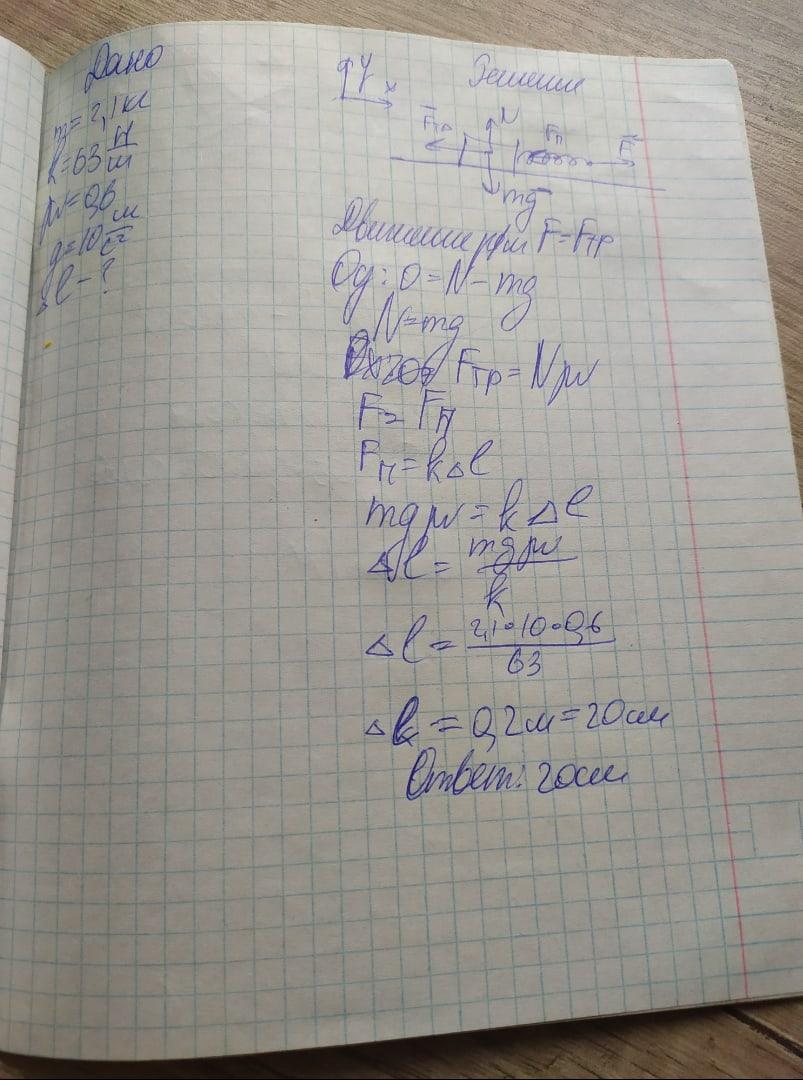 Дано
m = 2,1 кг
k = 63 Н/м
μ = 0,6
g = 10 м/с²
Δl - ?
y
x
Решение
Fтр
N
Fп
F
mg
Движение при F = Fтр
Oy: 0 = N - mg
N = mg
Fтр = Nμ
F = Fп
Fп = kΔl
mgμ = kΔl
Δl = mgμ/k
Δl = 2,1·10·0,6/63
Δl = 0,2 м = 20 см
Ответ: 20 см